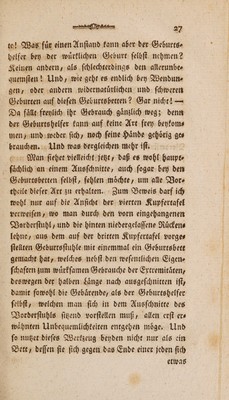 27
te! Was für einen Anstand kann aber der Geburts-
helfer bey der würklichen Geburt selbst nehmen?
Keinen andern, als schlechterdings den allerunbe-
quemsten! Und, wie geht es endlich bey Wendun-
gen, oder andern widernatürlichen und schweren
Geburten auf diesen Geburtsbetten? Gar nicht! —
Da fälle freylich ihr Gebrauch gänzlich weg; denn
der Geburtshelfer kann auf keine Art frey beykom-
men, und weder sich, noch seine Hände gehörig ge-
brauchen. Und was dergleichen mehr ist.
Man siehet vielleicht jetzt, daß es wohl haupt-
sächlich an einem Ausschnitte, auch sogar bey den
Geburtsbetten selbst, fehlen möchte, um alle Vor-
theile dieser Art zu erhalten. Zum Beweis darf ich
wohl nur auf die Ansicht der vierten Kupfertafel
verweisen, wo man durch den vorn eingehangenen
Vorderstuhl, und die hinten niedergelassene Rücken-
lehne, aus dem auf der dritten Kupfertafel vorge-
stellten Geburtsstuhle mit einemmal ein Geburtsbett
gemacht hat, welches nebst den wesentlichen Eigen-
schaften zum würksamen Gebrauche der Extremitäten,
deswegen der halben Länge nach ausgeschnitten ist,
damit sowohl die Gebärende, als der Geburtshelfer
selbst, welchen man sich in dem Ausschnitte des
Vorderstuhls sitzend vorstellen muß, allen erst er-
wähnten Unbequemlichkeiten entgehen möge. Und
so nutzet dieses Werkzeug beyden nicht nur als ein
Bett, dessen sie sich gegen das Ende einer jeden sich
etwas